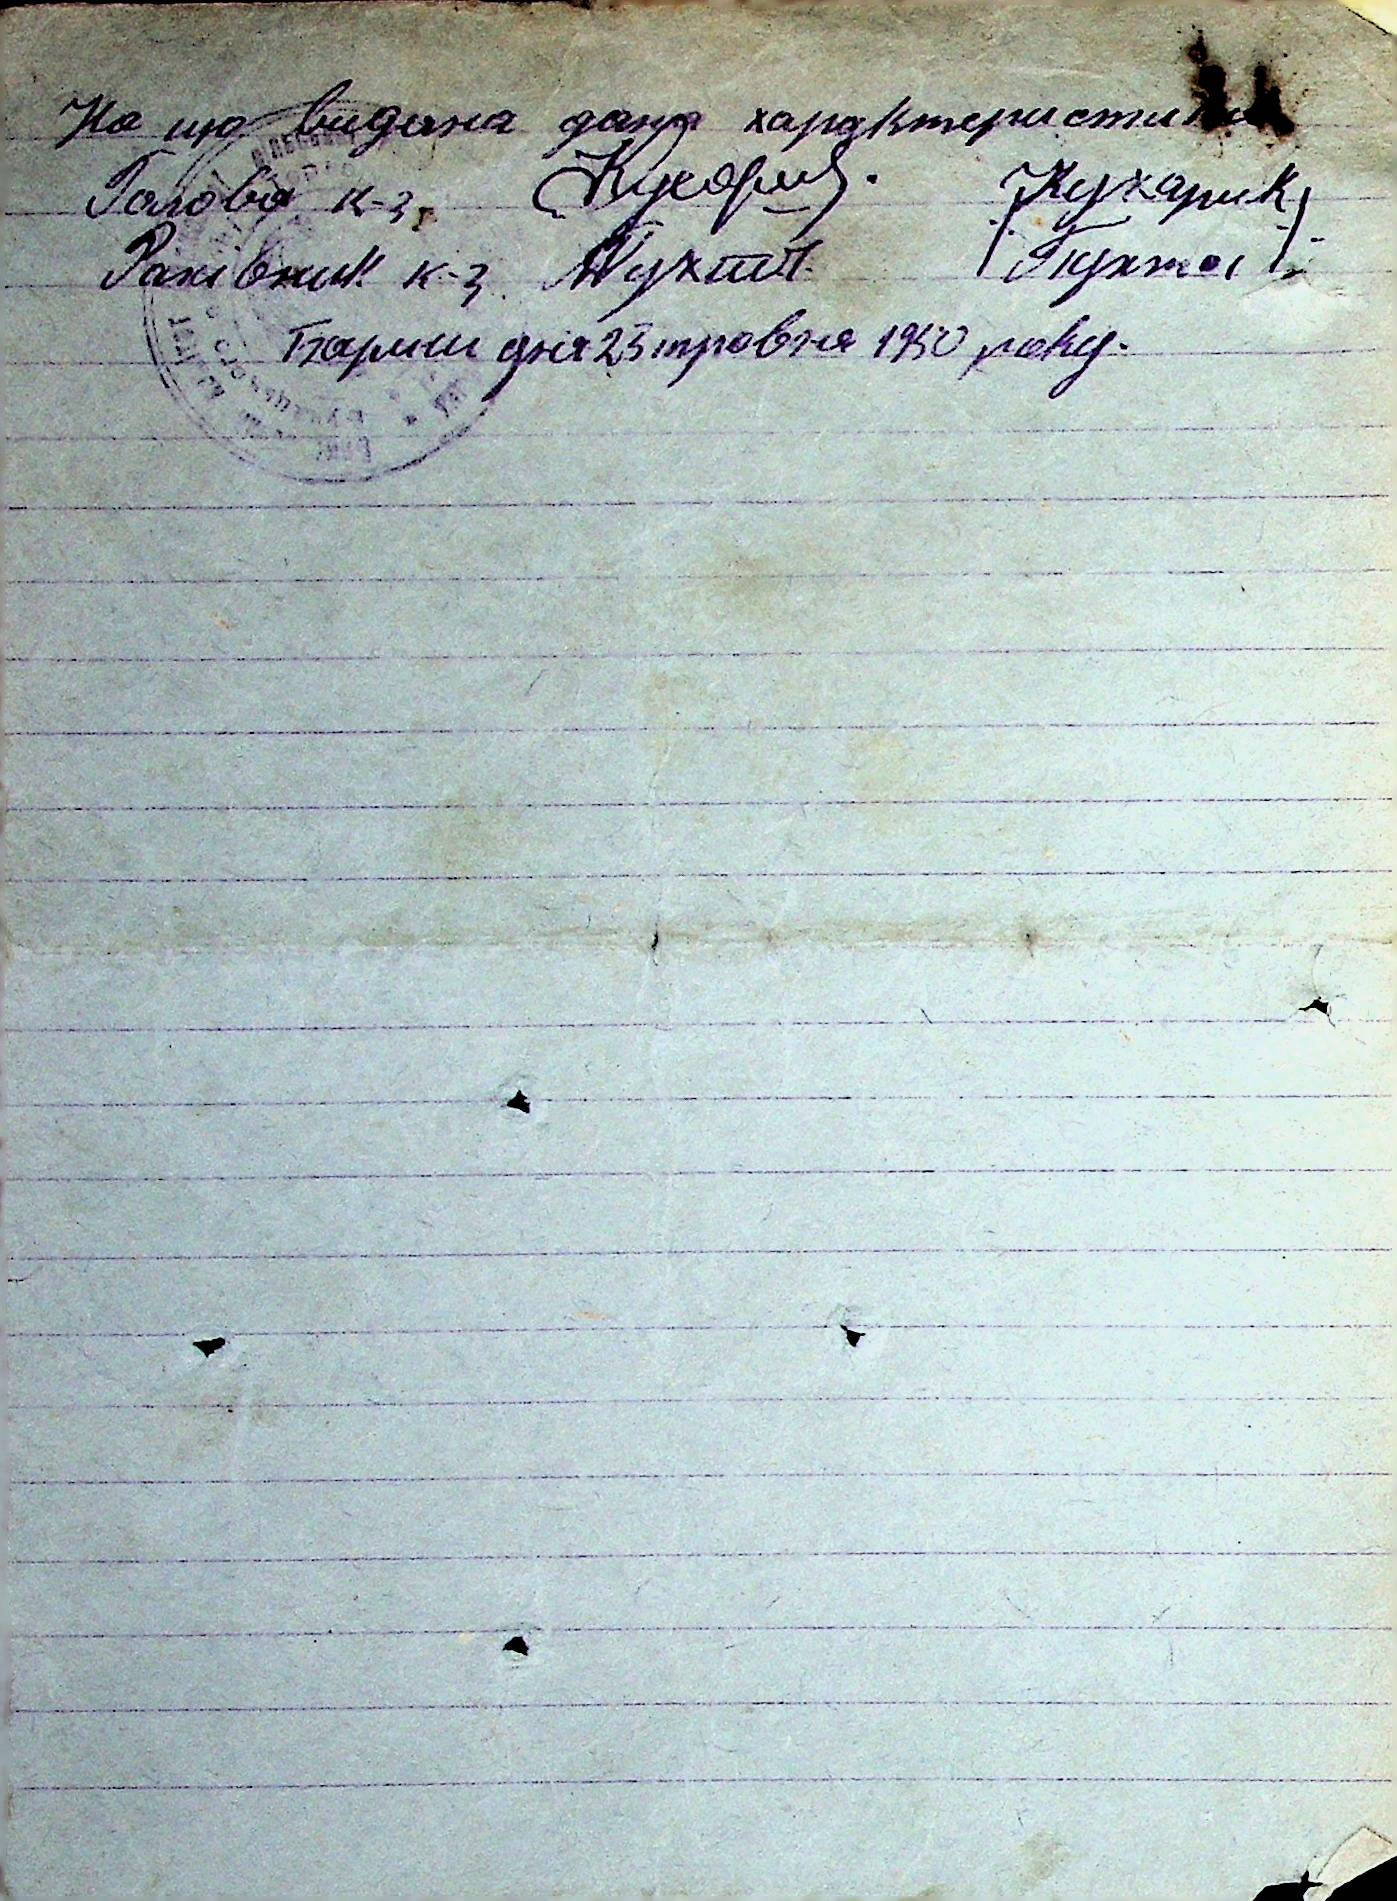 На що видана дана характеристика
Голова к-з. Кухарик. /Кухарик/
Рахівник к-з. Пухта /Пухта/
дня 25 травня 1950 року.